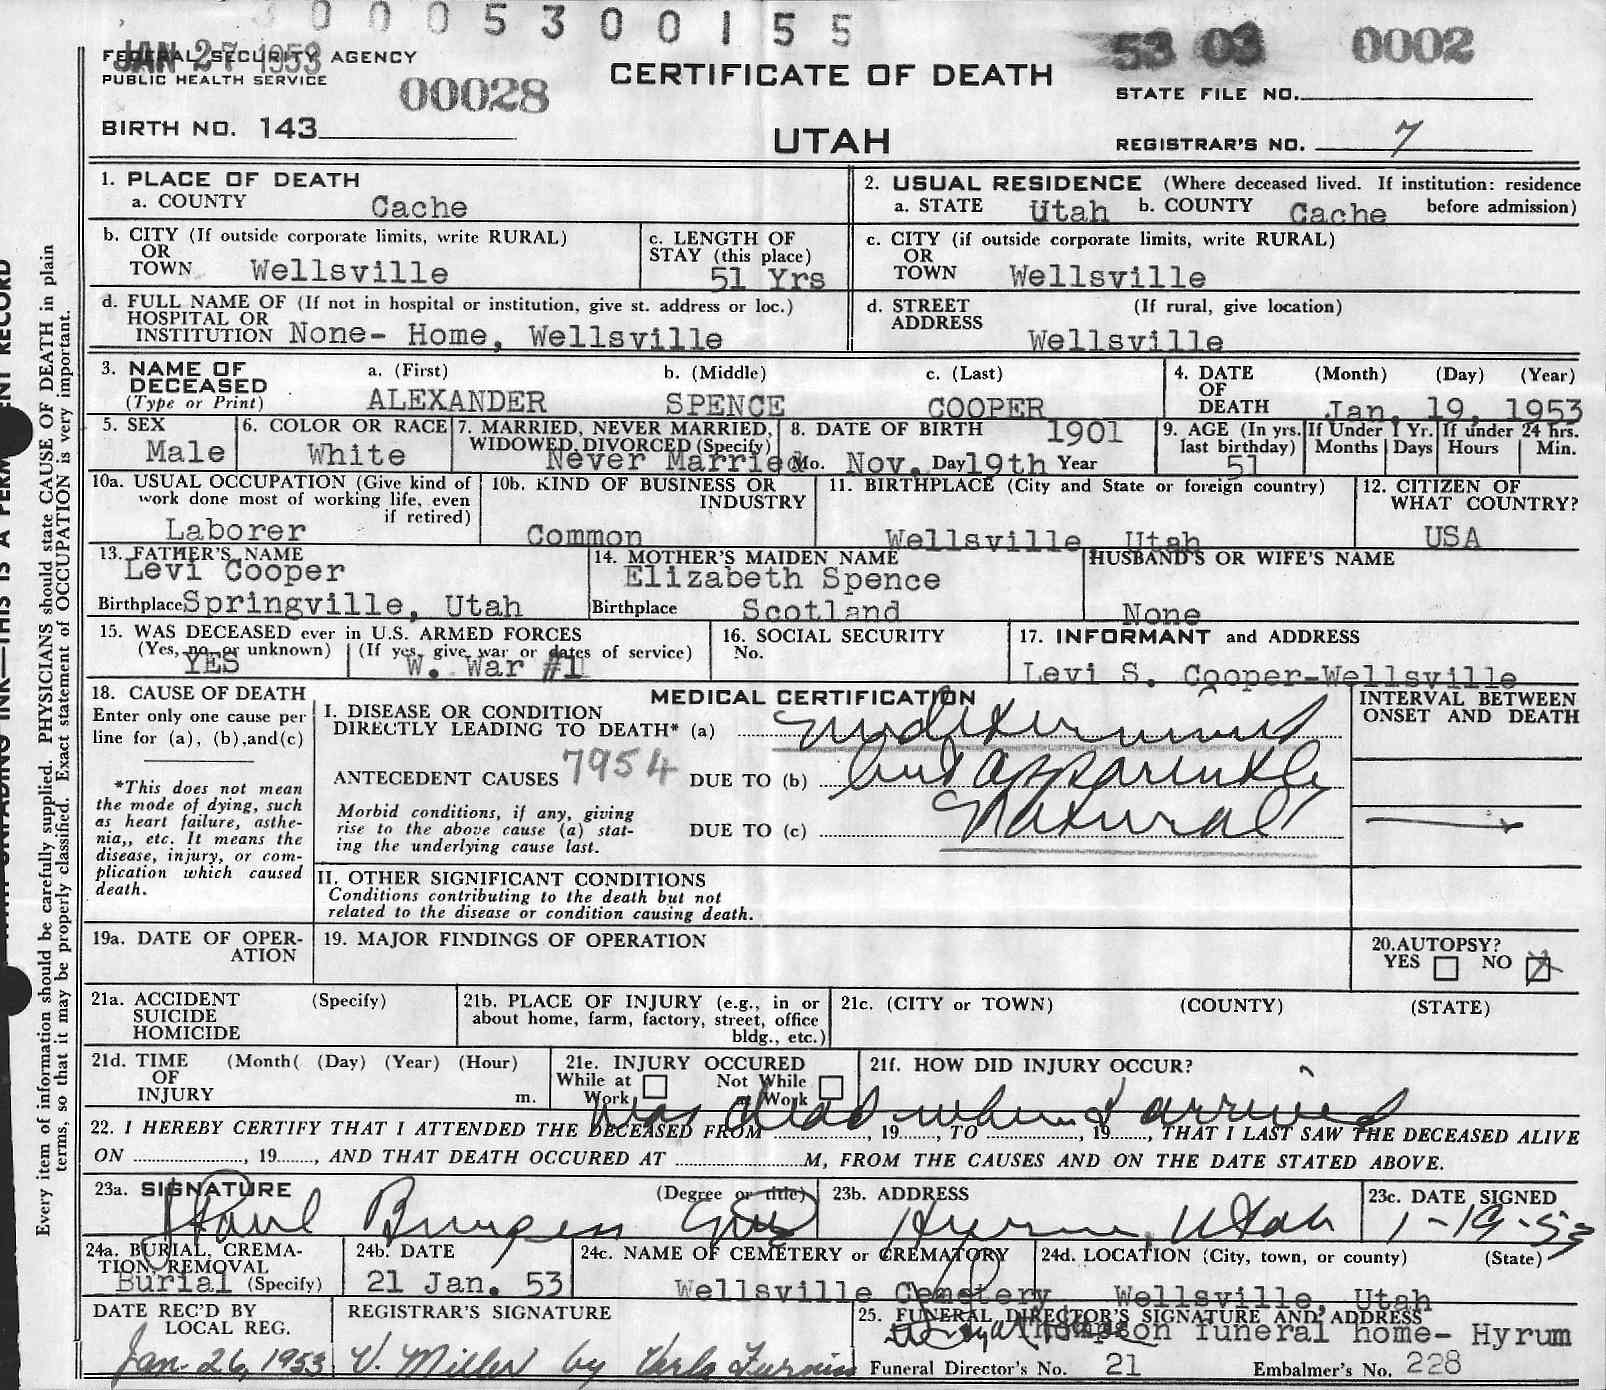 0 0 0 5 3 0 0 1 5 5
JAN 27 1953
53 03 0002
FEDERAL SECURITY AGENCY
PUBLIC HEALTH SERVICE
00028
CERTIFICATE OF DEATH
STATE FILE NO.
BIRTH NO. 143
UTAH
REGISTRAR'S NO. 7
1. PLACE OF DEATH
a. COUNTY Cache
2. USUAL RESIDENCE (Where deceased lived. If institution: residence before admission)
a. STATE Utah b. COUNTY Cache
b. CITY (If outside corporate limits, write RURAL)
OR
TOWN Wellsville
c. LENGTH OF
STAY (this place)
51 Yrs
c. CITY (if outside corporate limits, write RURAL)
OR
TOWN Wellsville
d. FULL NAME OF (If not in hospital or institution, give st. address or loc.)
HOSPITAL OR
INSTITUTION None- Home, Wellsville
d. STREET (If rural, give location)
ADDRESS
Wellsville
3. NAME OF
DECEASED
(Type or Print)
a. (First) b. (Middle) c. (Last)
ALEXANDER SPENCE COOPER
4. DATE (Month) (Day) (Year)
OF
DEATH Jan. 19, 1953
5. SEX
Male
6. COLOR OR RACE
White
7. MARRIED, NEVER MARRIED,
WIDOWED, DIVORCED (Specify)
Never Married
8. DATE OF BIRTH 1901
Mo. Nov. Day 19th Year
9. AGE (In yrs.
last birthday)
51
If Under 1 Yr.
Months Days
If under 24 hrs.
Hours Min.
10a. USUAL OCCUPATION (Give kind of
work done most of working life, even
if retired)
Laborer
10b. KIND OF BUSINESS OR
INDUSTRY
Common
11. BIRTHPLACE (City and State or foreign country)
Wellsville Utah
12. CITIZEN OF
WHAT COUNTRY?
USA
13. FATHER'S NAME
Levi Cooper
Birthplace Springville, Utah
14. MOTHER'S MAIDEN NAME
Elizabeth Spence
Birthplace Scotland
HUSBAND'S OR WIFE'S NAME
None
15. WAS DECEASED ever in U.S. ARMED FORCES
(Yes, no, or unknown) (If yes, give war or dates of service)
YES W. War #1
16. SOCIAL SECURITY
No.
17. INFORMANT and ADDRESS
Levi S. Cooper-Wellsville
18. CAUSE OF DEATH
Enter only one cause per
line for (a), (b), and (c)
*This does not mean
the mode of dying, such
as heart failure, asthe-
nia,, etc. It means the
disease, injury, or com-
plication which caused
death.
MEDICAL CERTIFICATION
INTERVAL BETWEEN
ONSET AND DEATH
I. DISEASE OR CONDITION
DIRECTLY LEADING TO DEATH* (a) Undetermined
ANTECEDENT CAUSES 7954 DUE TO (b) but apparently
Morbid conditions, if any, giving
rise to the above cause (a) stat-
ing the underlying cause last.
DUE TO (c) Natural
II. OTHER SIGNIFICANT CONDITIONS
Conditions contributing to the death but not
related to the disease or condition causing death.
19a. DATE OF OPER-
ATION
19. MAJOR FINDINGS OF OPERATION
20. AUTOPSY?
YES NO X
21a. ACCIDENT (Specify)
SUICIDE
HOMICIDE
21b. PLACE OF INJURY (e.g., in or
about home, farm, factory, street, office
bldg., etc.)
21c. (CITY or TOWN) (COUNTY) (STATE)
21d. TIME (Month( (Day) (Year) (Hour)
OF
INJURY m.
21e. INJURY OCCURED
While at Work Not While at Work
21f. HOW DID INJURY OCCUR?
was dead when I arrived
22. I HEREBY CERTIFY THAT I ATTENDED THE DECEASED FROM ..........., 19......, TO ..........., 19......, THAT I LAST SAW THE DECEASED ALIVE
ON ..........., 19......, AND THAT DEATH OCCURED AT ...........M, FROM THE CAUSES AND ON THE DATE STATED ABOVE.
23a. SIGNATURE (Degree or title)
Paul Burgess
23b. ADDRESS
Hyrum, Utah
23c. DATE SIGNED
1-19-53
24a. BURIAL, CREMA-
TION, REMOVAL
Burial (Specify)
24b. DATE
21 Jan. 53
24c. NAME OF CEMETERY or CREMATORY
Wellsville Cemetery
24d. LOCATION (City, town, or county) (State)
Wellsville, Utah
DATE REC'D BY
LOCAL REG.
Jan. 26, 1953
REGISTRAR'S SIGNATURE
V. Miller by
25. FUNERAL DIRECTOR'S SIGNATURE AND ADDRESS
Thompson funeral home- Hyrum
Funeral Director's No. 21 Embalmer's No. 228
Every item of information should be carefully supplied. PHYSICIANS should state CAUSE OF DEATH in plain
terms, so that it may be properly classified. Exact statement of OCCUPATION is very important.
UNFADING INK—THIS IS A PERMANENT RECORD